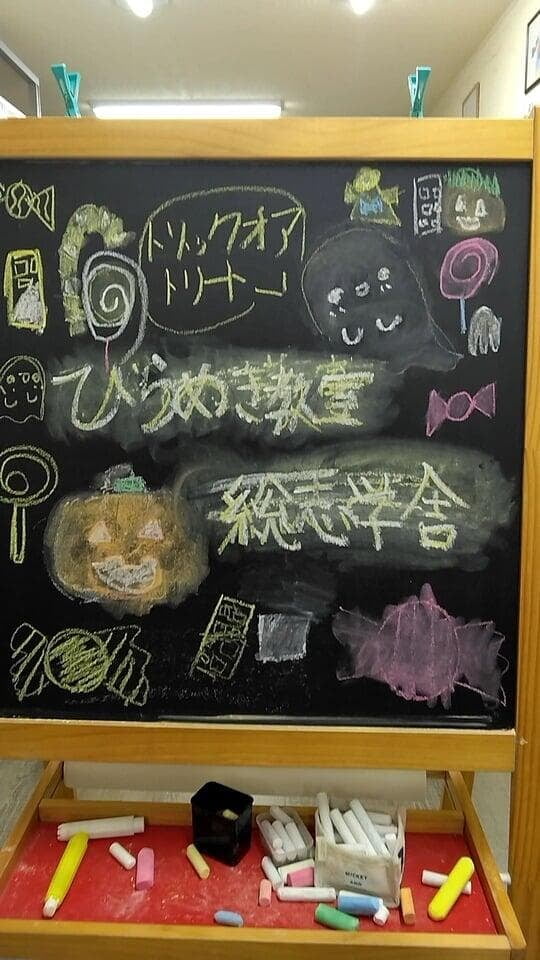 トリックオア
トリート
ひらめき教室
総志学舎
MICKEY
AND